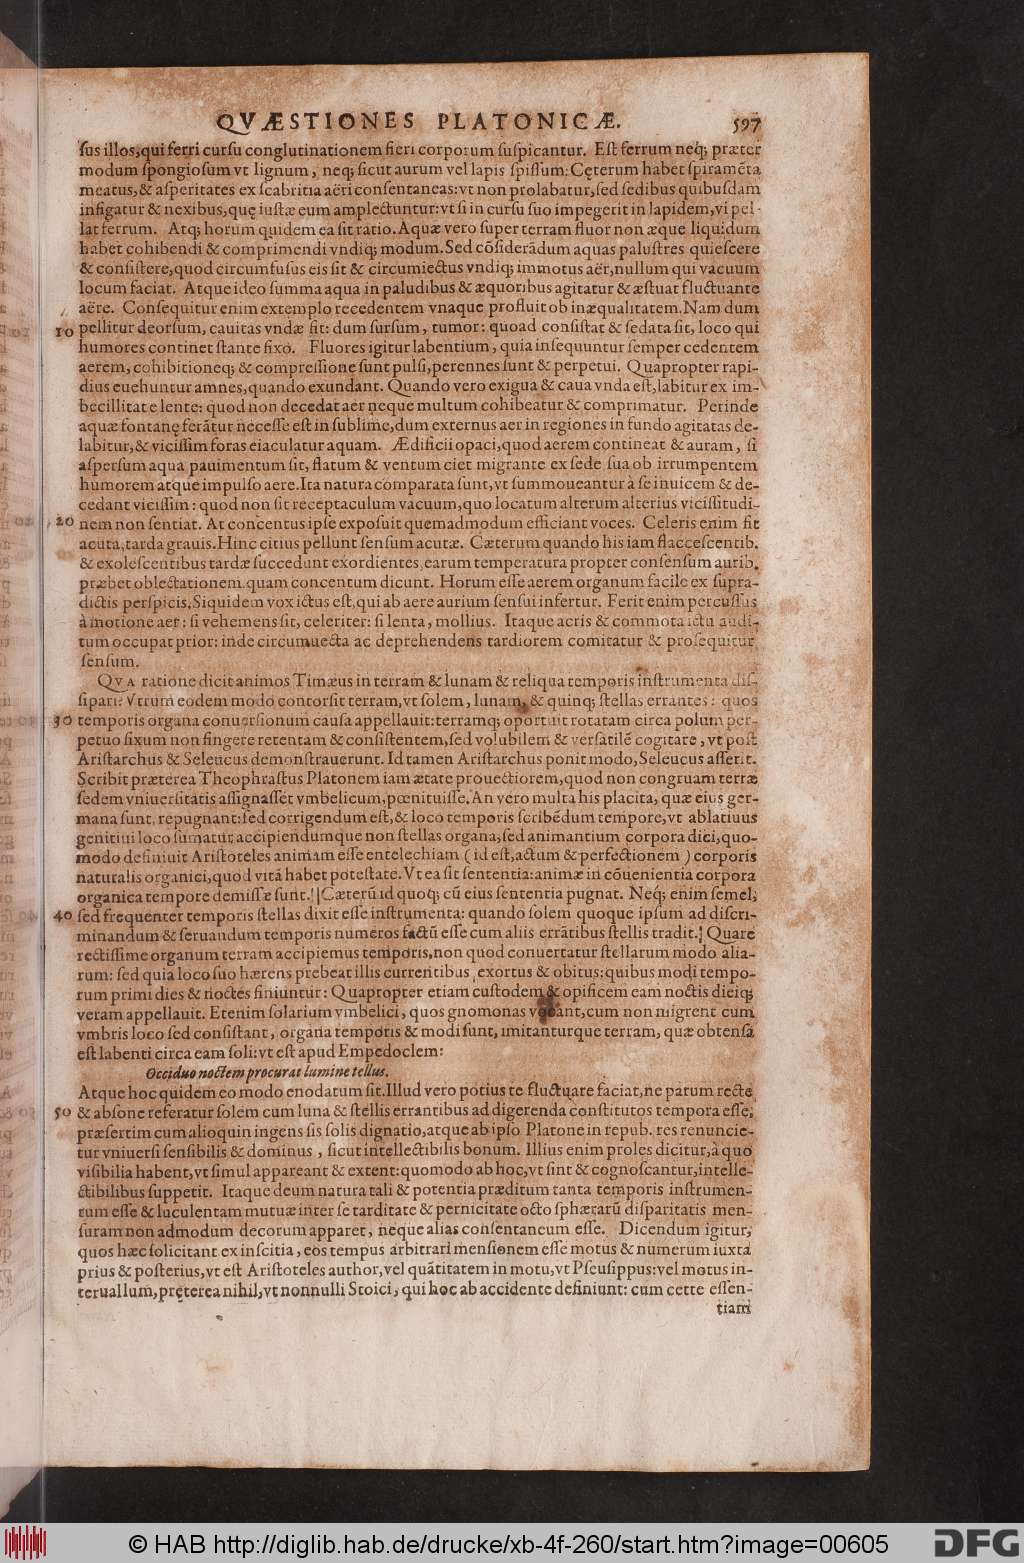 QVÆSTIONES PLATONICÆ. 597
sus illos,qui ferri cursu conglutinationem fieri corporum suspicantur. Est ferrum neq; præter
modum spongiosum vt lignum, neq; sicut aurum vel lapis spissum: Cęterum habet spiramẽta
meatus,& asperitates ex scabritia aëri consentaneas:vt non prolabatur,sed sedibus quibusdam
infigatur & nexibus,quę iustæ eum amplectuntur:vt si in cursu suo impegerit in lapidem,vi pel-
lat ferrum. Atq; horum quidem ea sit ratio.Aquæ vero super terram fluor non æque liquidum
habet cohibendi & comprimendi vndiq; modum.Sed cõsiderãdum aquas palustres quiescere
& consistere,quod circumfusus eis sit & circumiectus vndiq; immotus aër,nullum qui vacuum
locum faciat. Atque ideo summa aqua in paludibus & æquoribus agitatur & æstuat fluctuante
aëre. Consequitur enim extemplo recedentem vnaque profluit ob inæqualitatem.Nam dum
10 pellitur deorsum, cauitas vndæ fit: dum sursum, tumor: quoad consistat & sedata sit, loco qui
humores continet stante fixo. Fluores igitur labentium, quia insequuntur semper cedentem
aerem, cohibitioneq; & compressione sunt pulsi, perennes sunt & perpetui. Quapropter rapi-
dius euehuntur amnes,quando exundant. Quando vero exigua & caua vnda est,labitur ex im-
becillitate lente: quod non decedat aer neque multum cohibeatur & comprimatur. Perinde
aquæ fontanę ferãtur necesse est in sublime,dum externus aer in regiones in fundo agitatas de-
labitur,& vicissim foras eiaculatur aquam. Ædificii opaci,quod aerem contineat & auram, si
aspersum aqua pauimentum sit, flatum & ventum ciet migrante ex sede sua ob irrumpentem
humorem atque impulso aere.Ita natura comparata sunt,vt summoueantur à se inuicem & de-
cedant vicissim: quod non sit receptaculum vacuum,quo locatum alterum alterius vicissitudi-
20 nem non sentiat. At concentus ipse exposuit quemadmodum efficiant voces. Celeris enim fit
acuta,tarda grauis.Hinc citius pellunt sensum acutæ. Cæterum quando his iam flaccescentib.
& exolescentibus tardæ succedunt exordientes,earum temperatura propter consensum aurib.
præbet oblectationem quam concentum dicunt. Horum esse aerem organum facile ex supra-
dictis perspicis.Siquidem vox ictus est,qui ab aere aurium sensui infertur. Ferit enim percussus
à motione aer: si vehemens sit, celeriter: si lenta, mollius. Itaque acris & commota ictu audi-
tum occupat prior: inde circumuecta ac deprehendens tardiorem comitatur & prosequitur
sensum.
QVA ratione dicit animos Timæus in terram & lunam & reliqua temporis instrumenta dis-
sipari? Vtrum eodem modo contorsit terram,vt solem, lunam, & quinq; stellas errantes: quos
30 temporis organa conuersionum causa appellauit:terramq; oportuit rotatam circa polum per-
petuo fixum non fingere retentam & consistentem,sed volubilem & versatilẽ cogitare, vt post
Aristarchus & Seleucus demonstrauerunt. Id tamen Aristarchus ponit modo,Seleucus asserit.
Scribit præterea Theophrastus Platonem iam ætate prouectiorem,quod non congruam terræ
sedem vniuersitatis assignasset vmbelicum,pœnituisse.An vero multa his placita, quæ eius ger-
mana sunt, repugnant:sed corrigendum est,& loco temporis scribẽdum tempore,vt ablatiuus
genitiui loco sumatur,accipiendumque non stellas organa,sed animantium corpora dici,quo-
modo definiuit Aristoteles animam esse entelechiam (id est,actum & perfectionem) corporis
naturalis organici,quod vitã habet potestate. Vt ea sit sententia:animæ in cõuenientia corpora
organica tempore demissæ sunt. Cæterũ id quoq; cũ eius sententia pugnat. Neq; enim semel,
40 sed frequenter temporis stellas dixit esse instrumenta: quando solem quoque ipsum ad discri-
minandum & seruandum temporis numeros factũ esse cum aliis errãtibus stellis tradit. Quare
rectissime organum terram accipiemus temporis,non quod conuertatur stellarum modo alia-
rum: sed quia loco suo hærens prebeat illis currentibus exortus & obitus:quibus modi tempo-
rum primi dies & noctes finiuntur: Quapropter etiam custodem & opificem eam noctis dieiq;
veram appellauit. Etenim solarium vmbelici, quos gnomonas vocant,cum non migrent cum
vmbris loco sed consistant, organa temporis & modi sunt, imitanturque terram, quæ obtensa
est labenti circa eam soli:vt est apud Empedoclem:
Occiduo noctem procurat lumine tellus.
Atque hoc quidem eo modo enodatum sit.Illud vero potius te fluctuare faciat,ne parum recte
50 & absone referatur solem cum luna & stellis errantibus ad digerenda constitutos tempora esse,
præsertim cum alioquin ingens sis solis dignatio,atque ab ipso Platone in repub. res renuncie-
tur vniuersi sensibilis & dominus, sicut intellectibilis bonum. Illius enim proles dicitur,à quo
visibilia habent,vt simul appareant & extent:quomodo ab hoc,vt sint & cognoscantur,intelle-
ctibilibus suppetit. Itaque deum natura tali & potentia præditum tanta temporis instrumen-
tum esse & luculentam mutuæ inter se tarditate & pernicitate octo sphærarũ disparitatis men-
suram non admodum decorum apparet, neque alias consentaneum esse. Dicendum igitur,
quos hæc solicitant ex inscitia, eos tempus arbitrari mensionem esse motus & numerum iuxta
prius & posterius,vt est Aristoteles author,vel quãtitatem in motu,vt Pseusippus:vel motus in-
teruallum,pręterea nihil,vt nonnulli Stoici, qui hoc ab accidente definiunt: cum certe essen-
tiam
© HAB http://diglib.hab.de/drucke/xb-4f-260/start.htm?image=00605
DFG